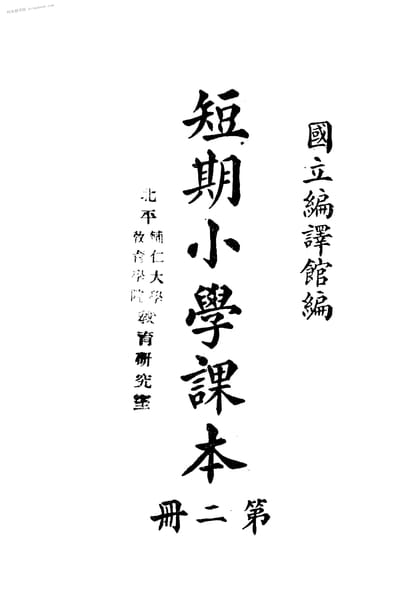 國立編譯館編
短期小學課本
第二冊
北平輔仁大學
教育學院教育研究室